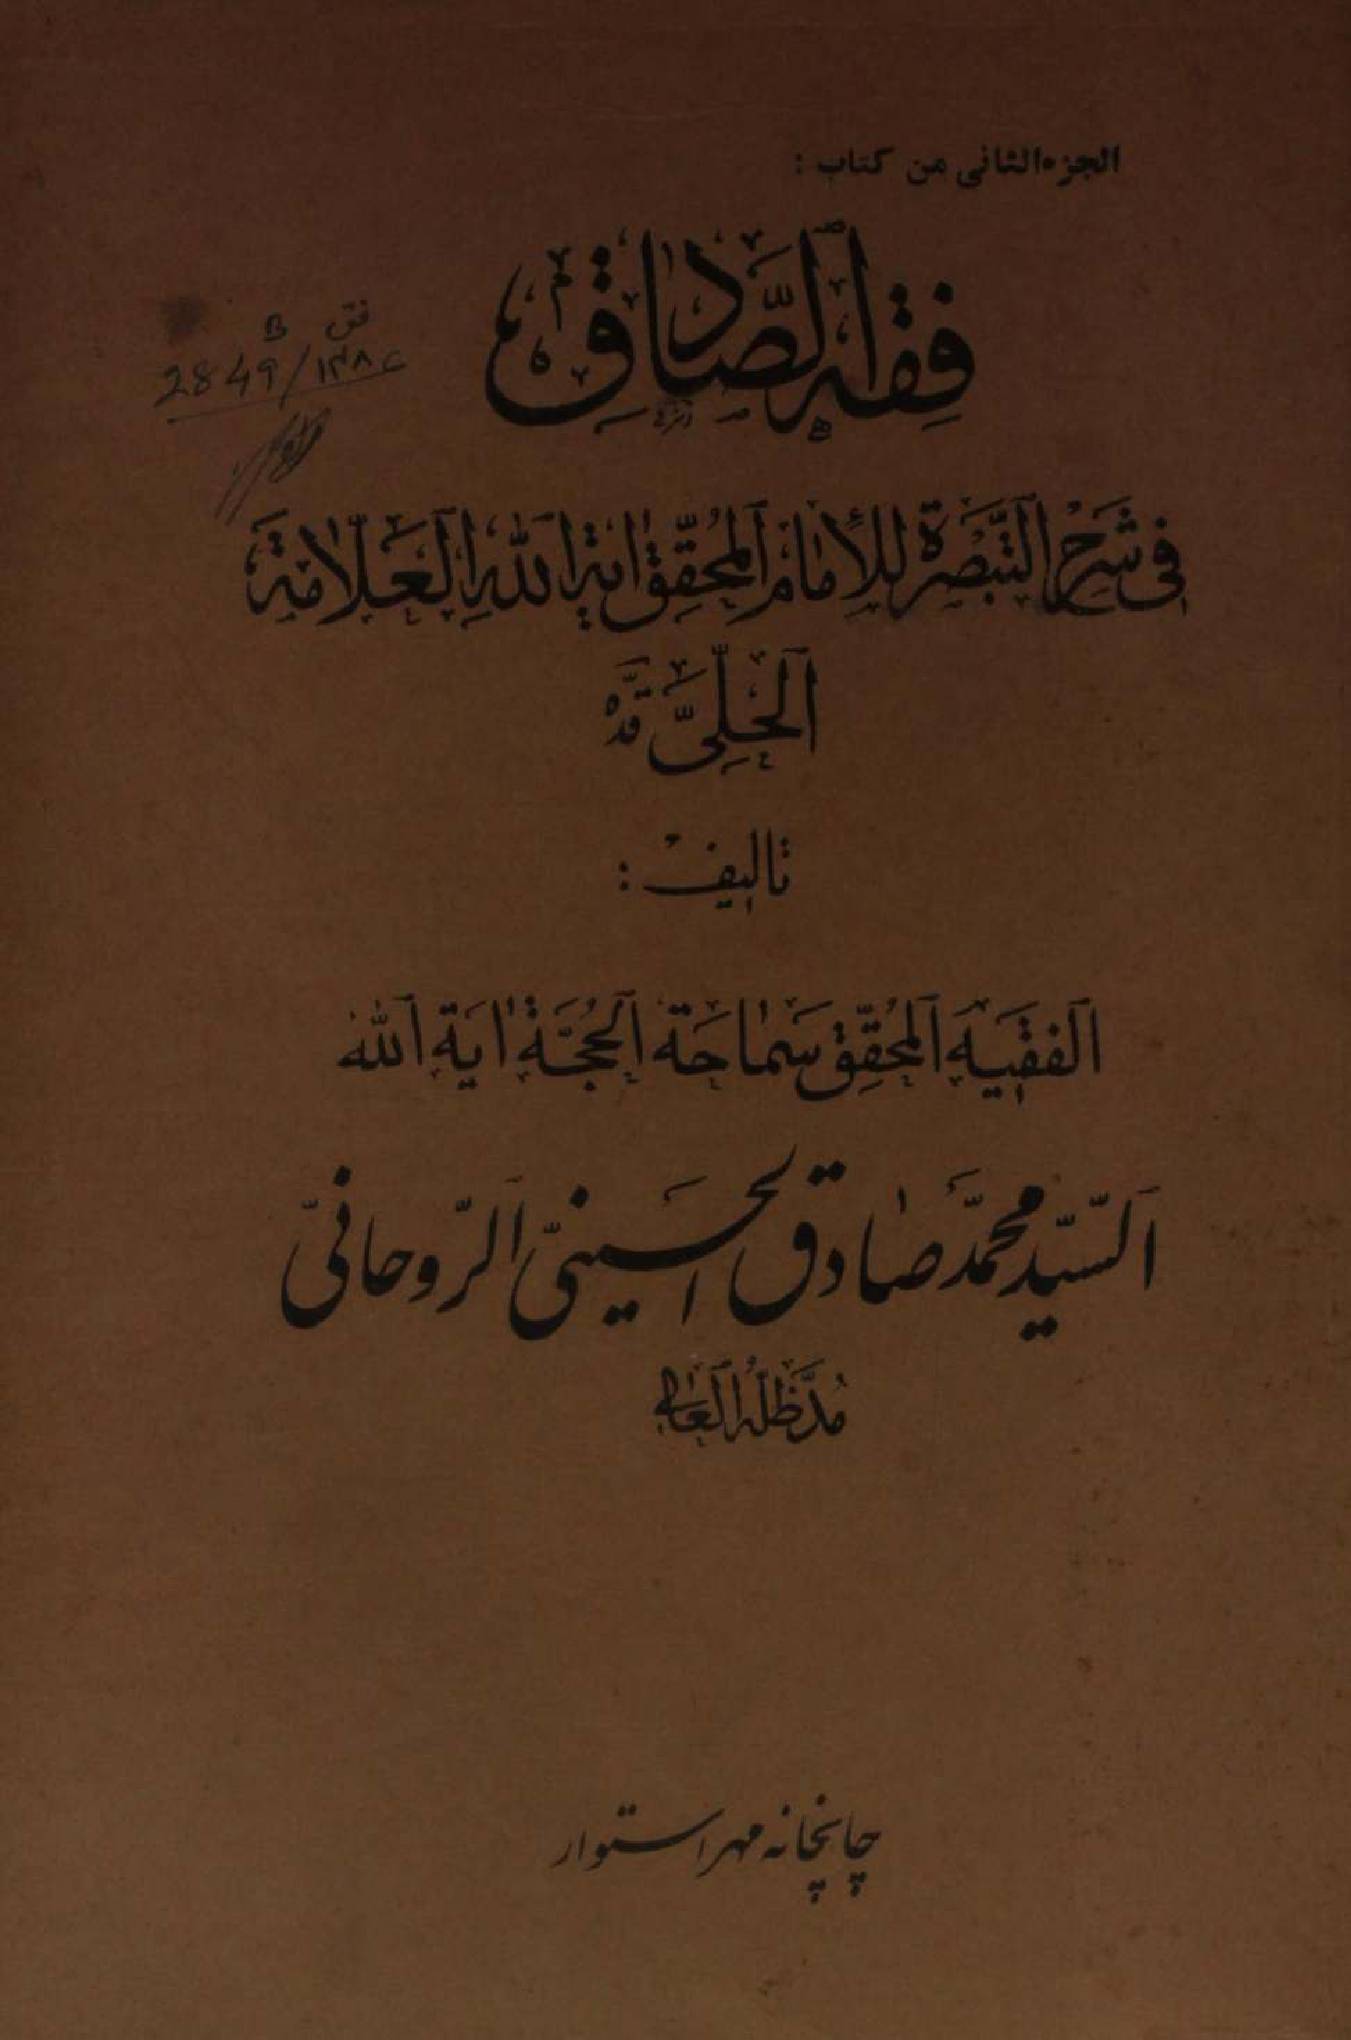 الجزءالثانی من کتاب :
فِقْهُ الصَّادِق
فق
B
2849/
فِی شَرْحِ التَّبْصَرَةِ لِلْإِمَامِ الْمُحَقِّقِ ایَةِ اللهِ الْعَلَّامَة
الْحِلِّیّ قده
تالیف :
الفَقِیه المُحَقِّق سَمَاحَة الحُجَّة ایَة الله
السَّیِّد مُحَمَّد صَادِق الحُسَینیّ الرَّوحانیّ
مُدَّظِلُّهُ العَالِی
چاپخانه مهر استوار